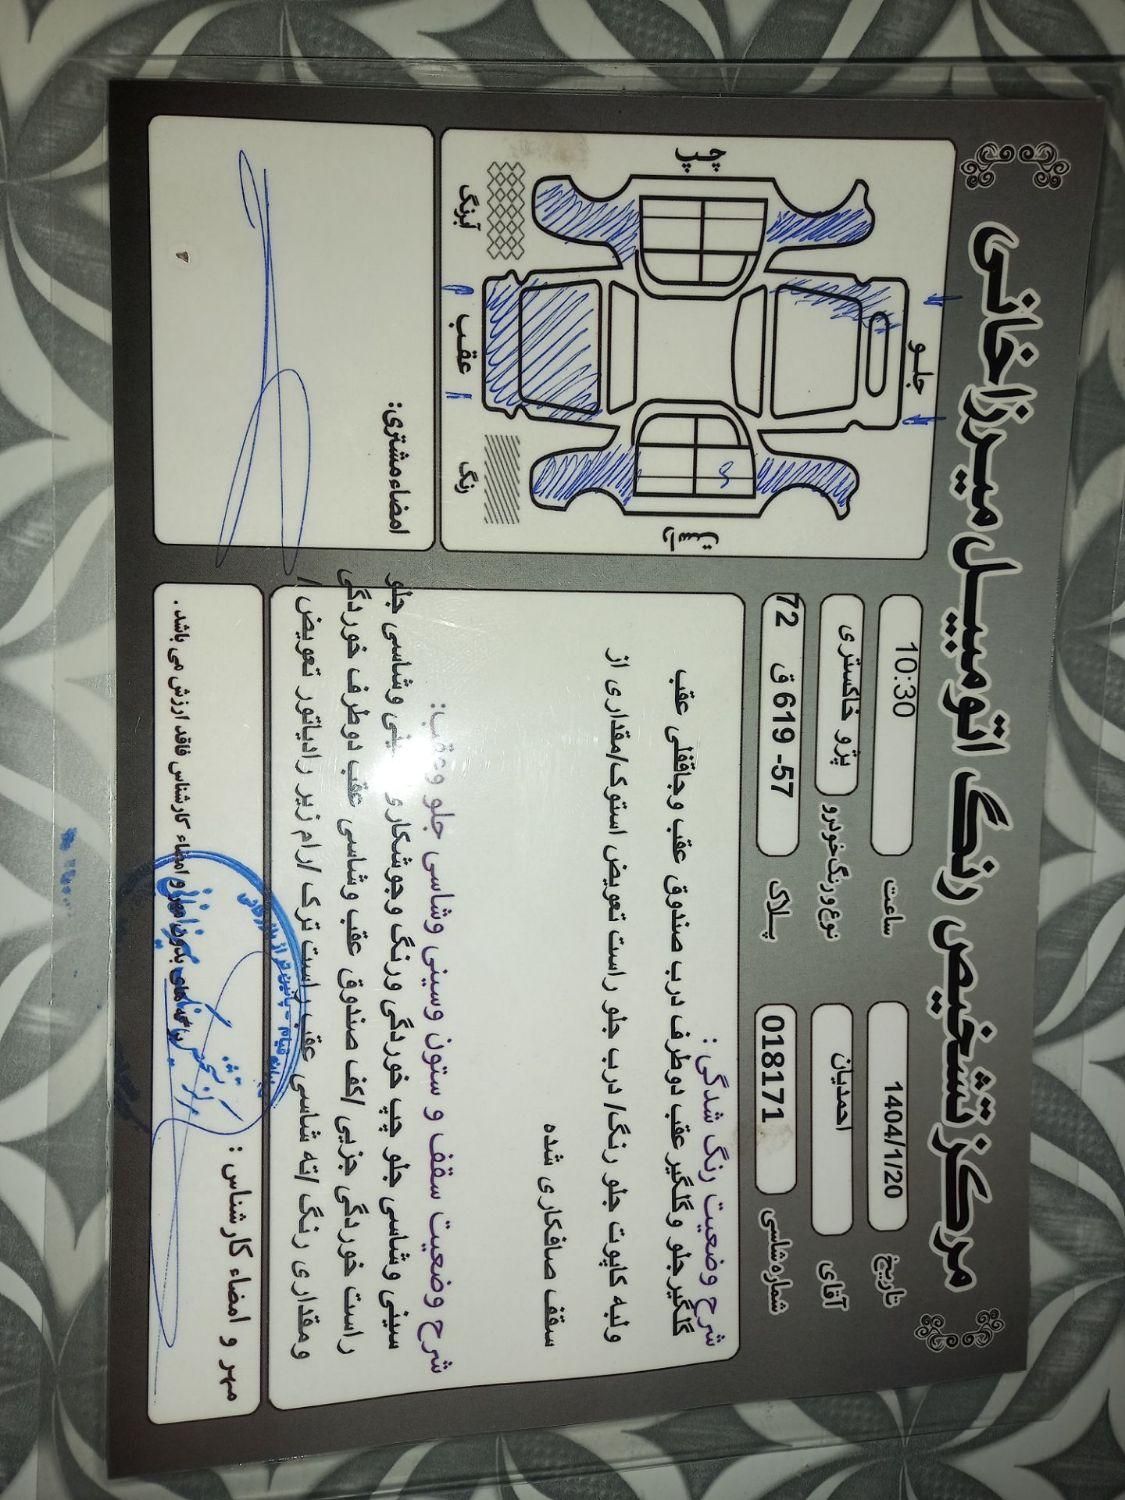 مرکز تشخیص رنگ اتومبیل میرزاخانی
تاریخ 1404/1/20
ساعت 10:30
آقای احمدیان
نوع و رنگ خودرو پژو خاکستری
شماره شاسی 018171
پلاک 72 ق 619 -57
شرح وضعیت رنگ شدگی :
گلگیر جلو و گلگیر عقب دو طرف درب صندوق عقب و جاقفلی عقب
ولبه کاپوت جلو رنگ/ درب جلو راست تعویض استوک/مقداری از
سقف صافکاری شده
شرح وضعیت سقف و ستون وسینی وشاسی جلو وعقب:
سینی وشاسی جلو چپ خوردگی ورنگ وجوشکاری وشاسی جلو
راست خوردگی جزیی /کف صندوق عقب وشاسی عقب دوطرف خوردگی
ومقداری رنگ /ته شاسی عقب راست ترک /رام زیر رادیاتور تعویض /
جلو
چپ
راست
عقب
آبرنگ
رنگ
امضاء مشتری:
مهر و امضاء کارشناس :
بدون مهر و امضاء کارشناس فاقد ارزش می باشد .